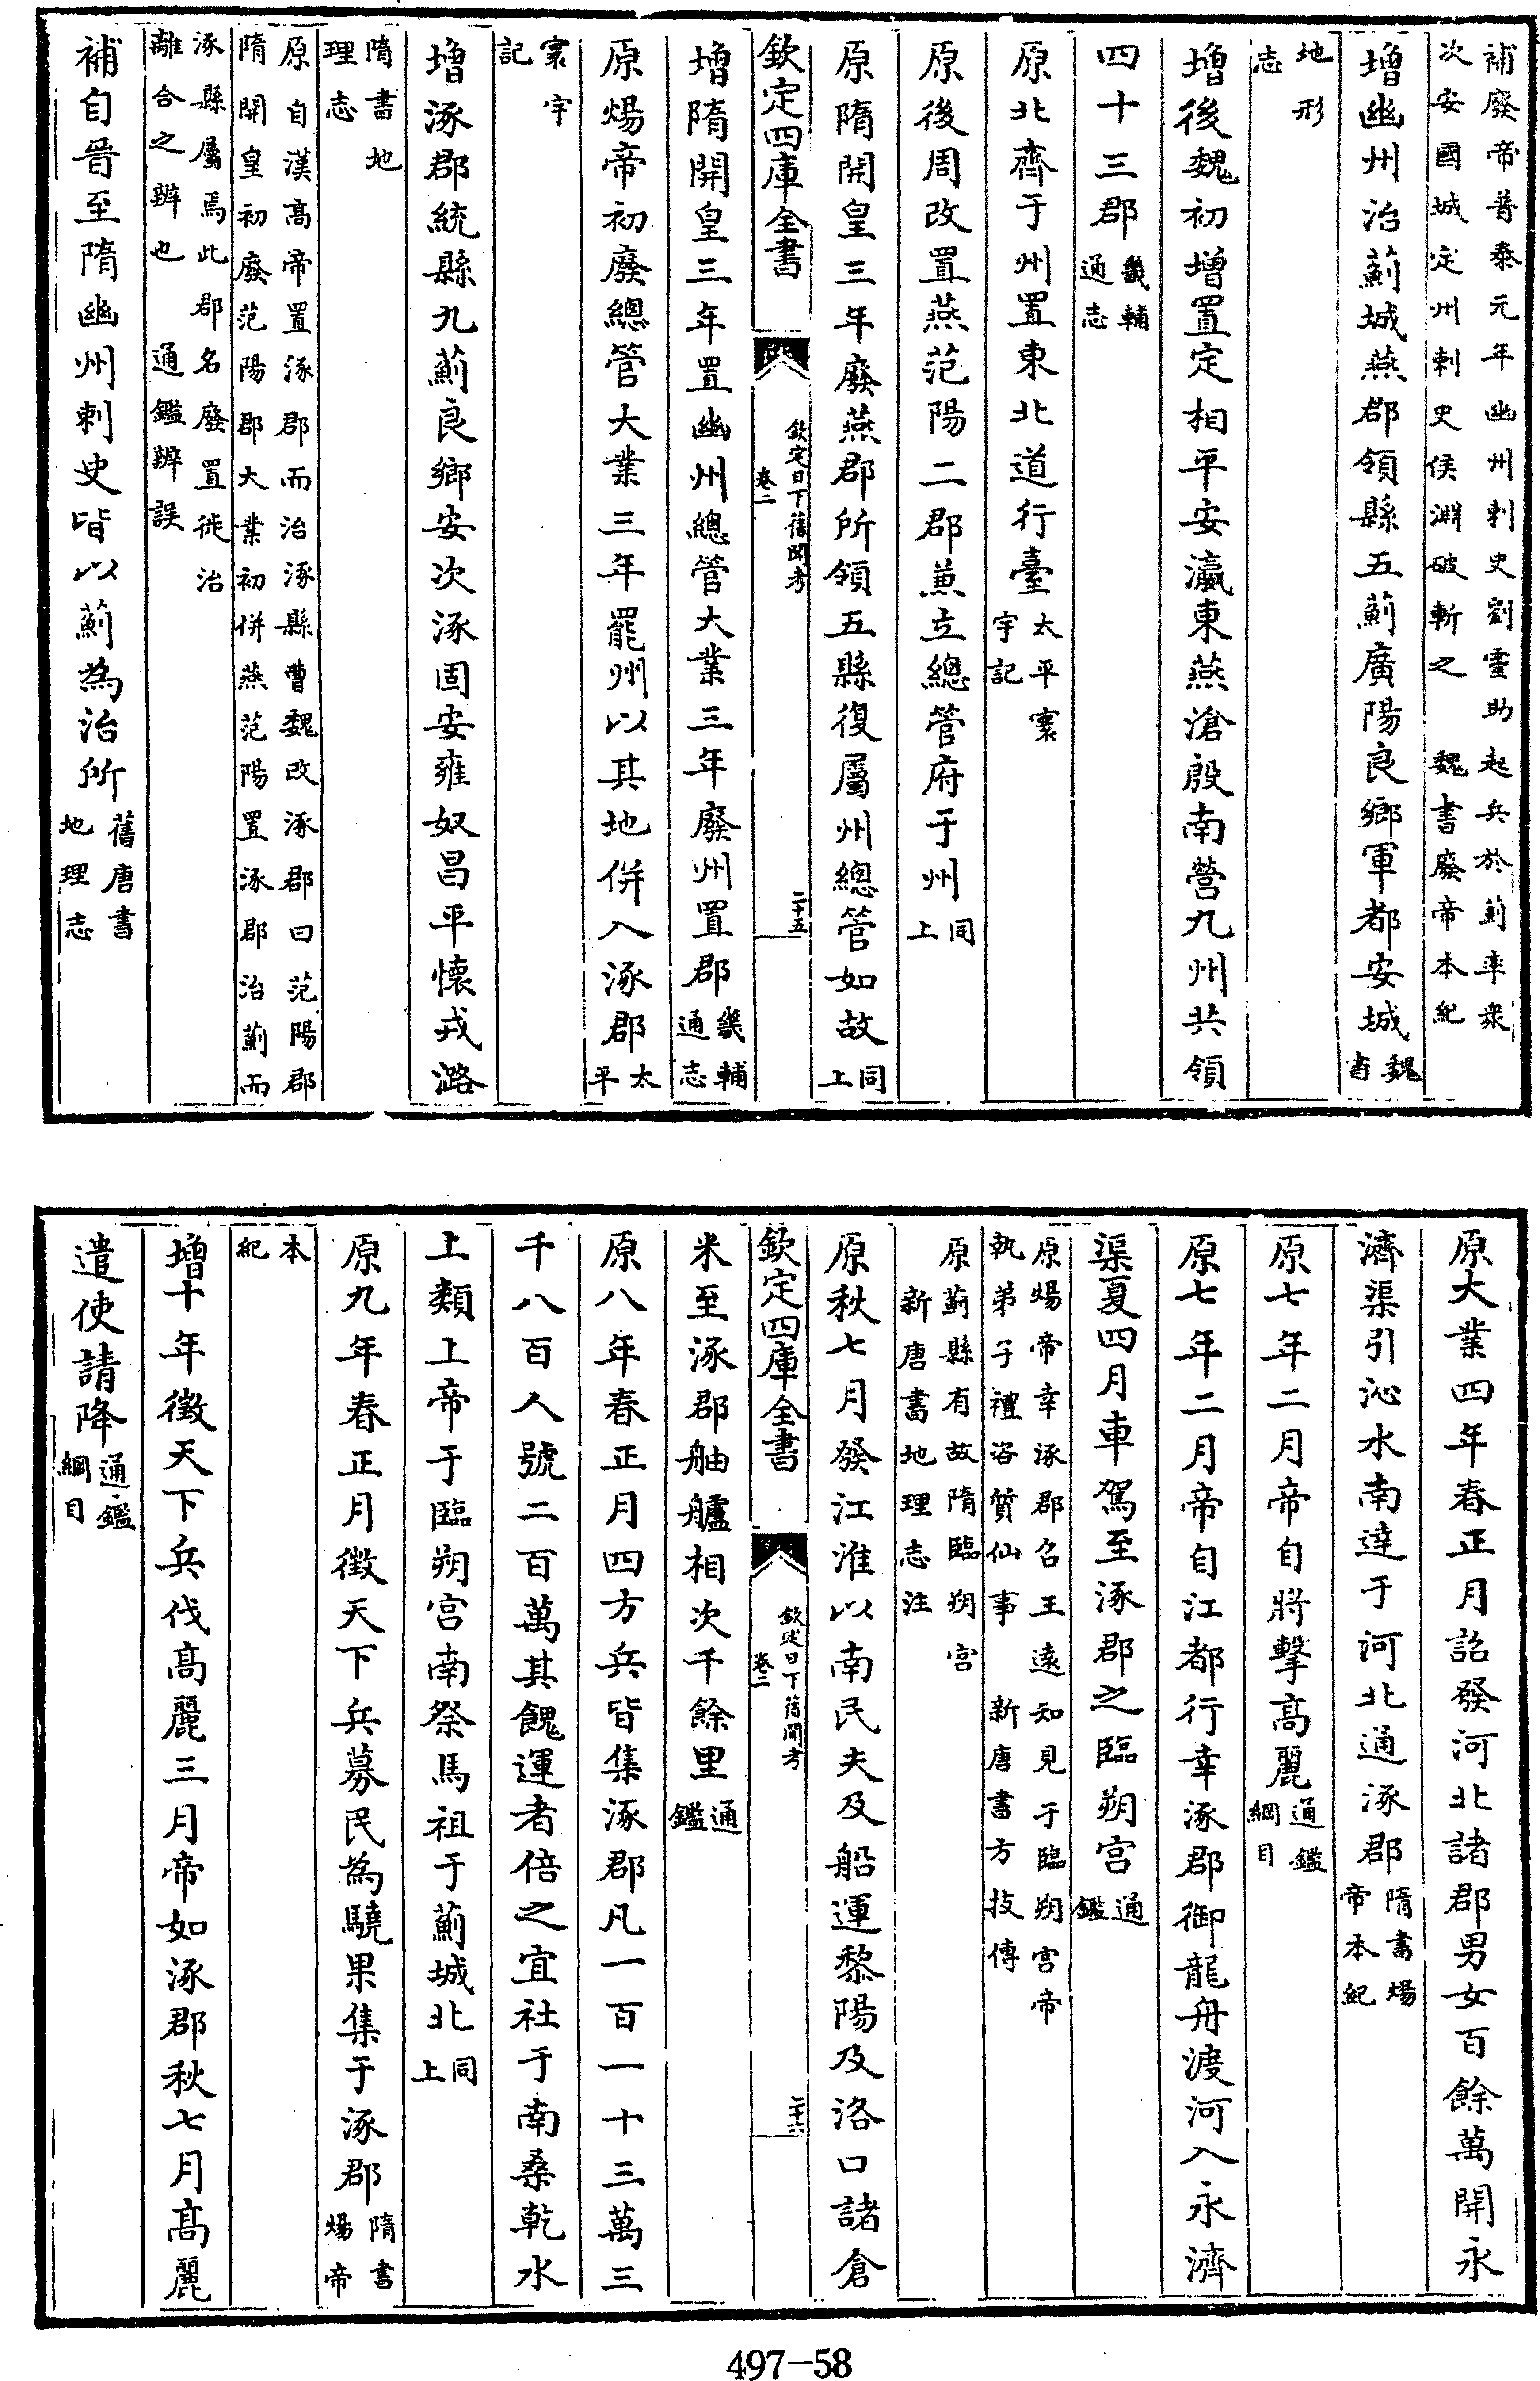 補廢帝普泰元年幽州刺史劉靈助起兵於薊率衆
次安國城定州刺史侯淵破斬之　魏書廢帝本紀
增幽州治薊城燕郡領縣五薊廣陽良鄉軍都安城魏書
地形志
增後魏初增置定相平安瀛東燕滄殷南營九州共領
四十三郡畿輔通志
原北齊于州置東北道行臺太平寰宇記
原後周改置燕范陽二郡兼立總管府于州同上
原隋開皇三年廢燕郡所領五縣復屬州總管如故同上
欽定四庫全書
欽定日下舊聞考
卷二
二十五
增隋開皇三年置幽州總管大業三年廢州置郡畿輔通志
原煬帝初廢總管大業三年罷州以其地併入涿郡太平
寰宇記
增涿郡統縣九薊良鄉安次涿固安雍奴昌平懷戎潞
隋書地理志
原自漢高帝置涿郡而治涿縣曹魏改涿郡曰范陽郡
隋開皇初廢范陽郡大業初併燕范陽置涿郡治薊而
涿縣屬焉此郡名廢置徙治
離合之辨也　通鑑辨誤
補自晉至隋幽州刺史皆以薊為治所舊唐書地理志
原大業四年春正月詔發河北諸郡男女百餘萬開永
濟渠引沁水南達于河北通涿郡隋書煬帝本紀
原七年二月帝自將擊高麗通鑑綱目
原七年二月帝自江都行幸涿郡御龍舟渡河入永濟
渠夏四月車駕至涿郡之臨朔宮通鑑
原煬帝幸涿郡召王遠知見于臨朔宮帝
執弟子禮咨質仙事　新唐書方技傳
原薊縣有故隋臨朔宮
新唐書地理志注
原秋七月發江淮以南民夫及船運黎陽及洛口諸倉
欽定四庫全書
欽定日下舊聞考
卷二
二十六
米至涿郡舳艫相次千餘里通鑑
原八年春正月四方兵皆集涿郡凡一百一十三萬三
千八百人號二百萬其餽運者倍之宜社于南桑乾水
上類上帝于臨朔宮南祭馬祖于薊城北同上
原九年春正月徵天下兵募民為驍果集于涿郡隋書煬帝
本紀
增十年徵天下兵伐高麗三月帝如涿郡秋七月高麗
遣使請降通鑑綱目
497-58